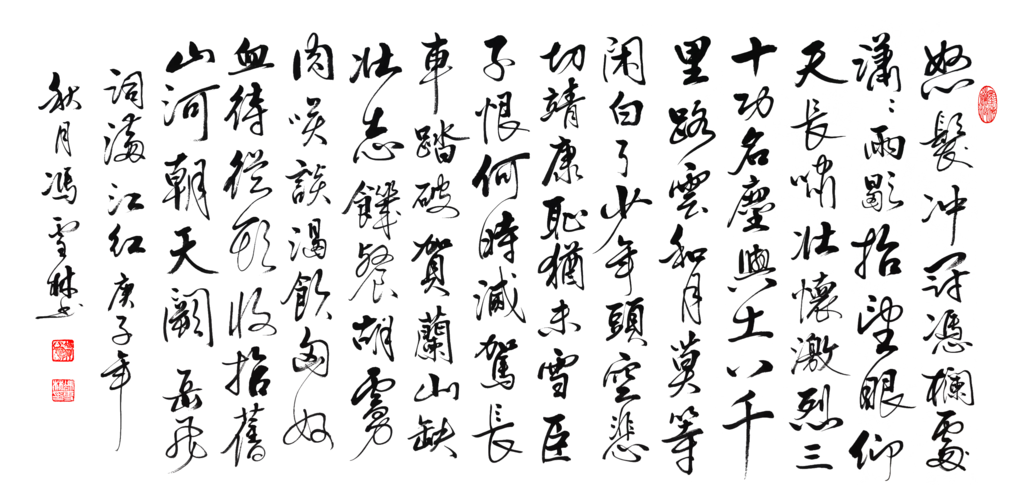 怒髮冲冠憑欄處
瀟〻雨歇抬望眼仰
天長嘯壯懷激烈三
十功名塵與土八千
里路雲和月莫等
閑白了少年頭空悲
切靖康恥猶未雪臣
子恨何時滅駕長
車踏破賀蘭山缺
壯志饑餐胡虜
肉笑談渴飲匈奴
血待從頭收拾舊
山河朝天闕 岳飛
詞滿江紅庚子年
秋月馮雪林书